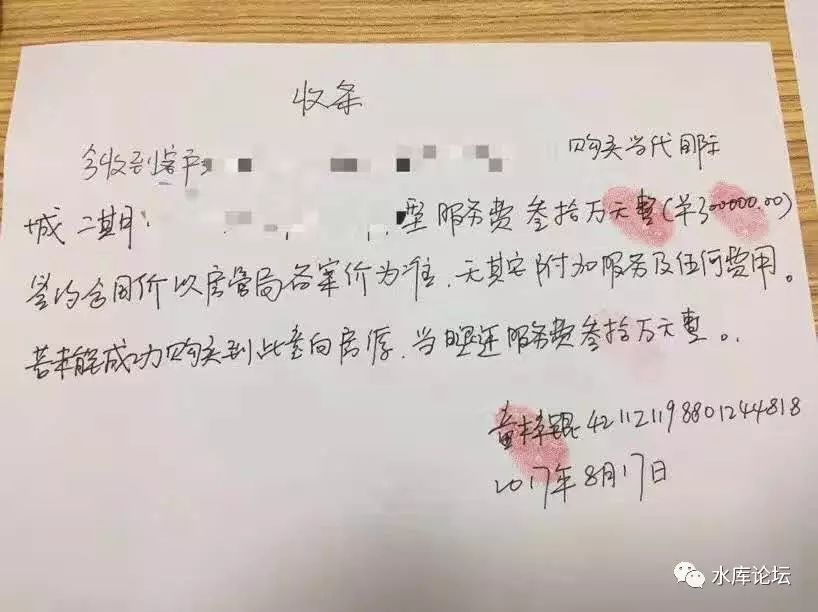 收条
今收到客户: 购买当代国际
城二期. 型服务费叁拾万元整(羊300000.00)
签约合同价以房管局备案价为准.无其它附加服务及任何费用。
若未能成功购买到此意向房源.当日退还服务费叁拾万元整。
黄 421121198801244818
2017年8月17日
水库论坛